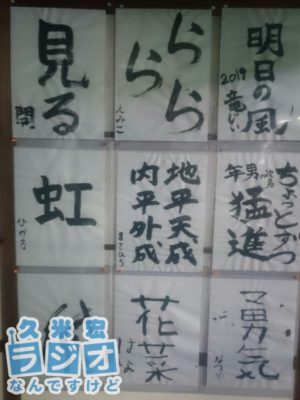 見る
開
ららら
えみこ
明日の風
2019
竜じい
虹
地平天成
内平外成
まさひろ
ちょっとずつ
猛進
年男
花菜
勇気
久米宏
ラジオ
なんですけど